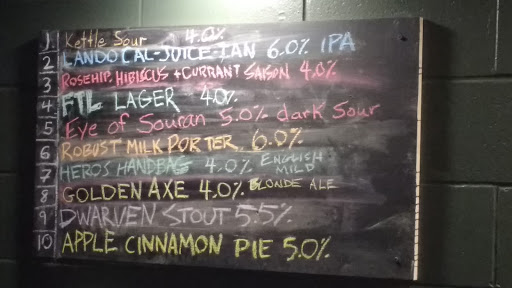 1. Kettle Sour 4.0%
2 LANDO CAL-JUICE-IAN 6.0% IPA
3 ROSEHIP, HIBISCUS + CURRANT SAISON 4.0%
4 FTL LAGER 4.0%
5 Eye of Souran 5.0% dark Sour
6 ROBUST MILK PORTER 6.0%
7 HEROS HANDBAG 4.0% ENGLISH MILD
8 GOLDEN AXE 4.0% BLONDE ALE
9 DWARVEN STOUT 5.5%
10 APPLE CINNAMON PIE 5.0%